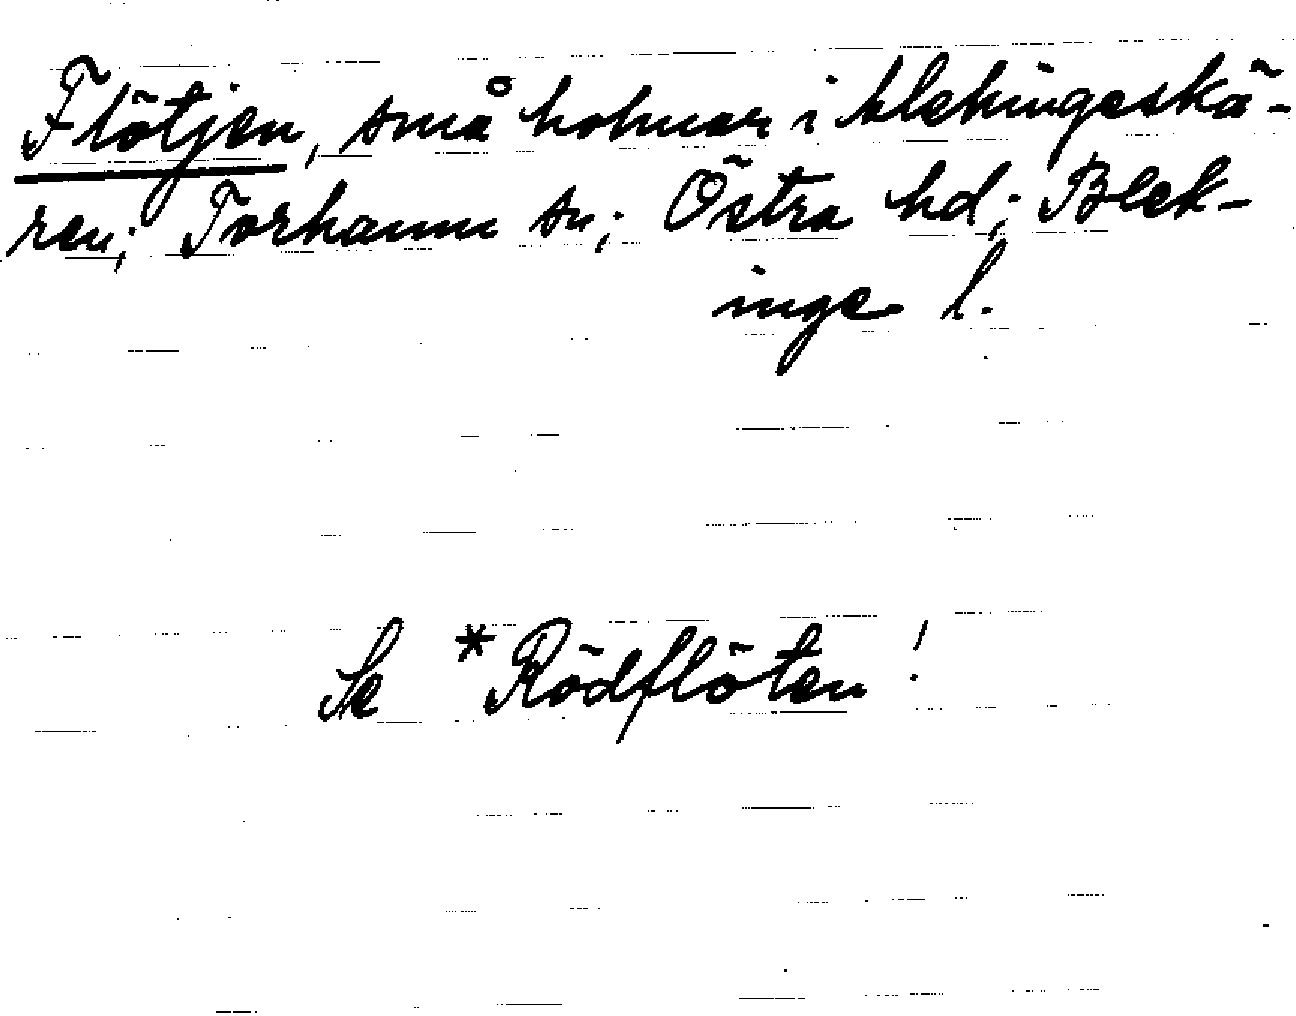 Flötjen, små holmar i blekingeskä-
ren; Torhamn sn; Östra hd; Blek-
inge l.
Se *Rödflöten!